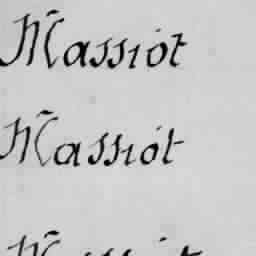 Massiot
Massiot